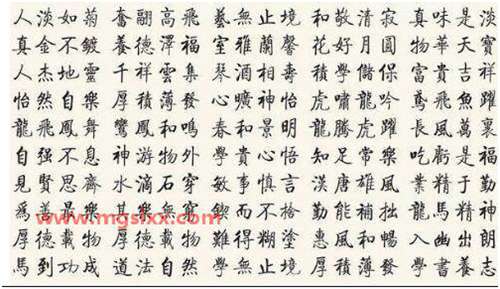 人淡如菊 奮翮高飛 藝無止境 和敬清寂 真味是淡
真金不鍍 養德澤福 室雅蘭馨 花好月圓 物華天寶
人杰地靈 千祥雲集 琴酒相壽 學儲保 富貴吉祥
怡然自樂 厚積薄發 心曠神怡 虎嘯龍吟 鳶飛魚躍
龍飛鳳舞 鸞鳳和鳴 春和景明 龍騰虎躍 長風萬裏
自强不息 神游物外 學貴心悟 知足常樂 吃虧是福
見賢思齊 水滴石穿 敏事慎言 漢唐雄風 業精于勤
爲善最樂 其樂無窮 鍥而不捨 勤能補拙 龍馬精神
www.mgslxx.com
厚德載物 厚德載物 難得糊塗 惠風和暢 入幽出朗
馬到功成 道法自然 學無止境 厚積薄發 學書養志